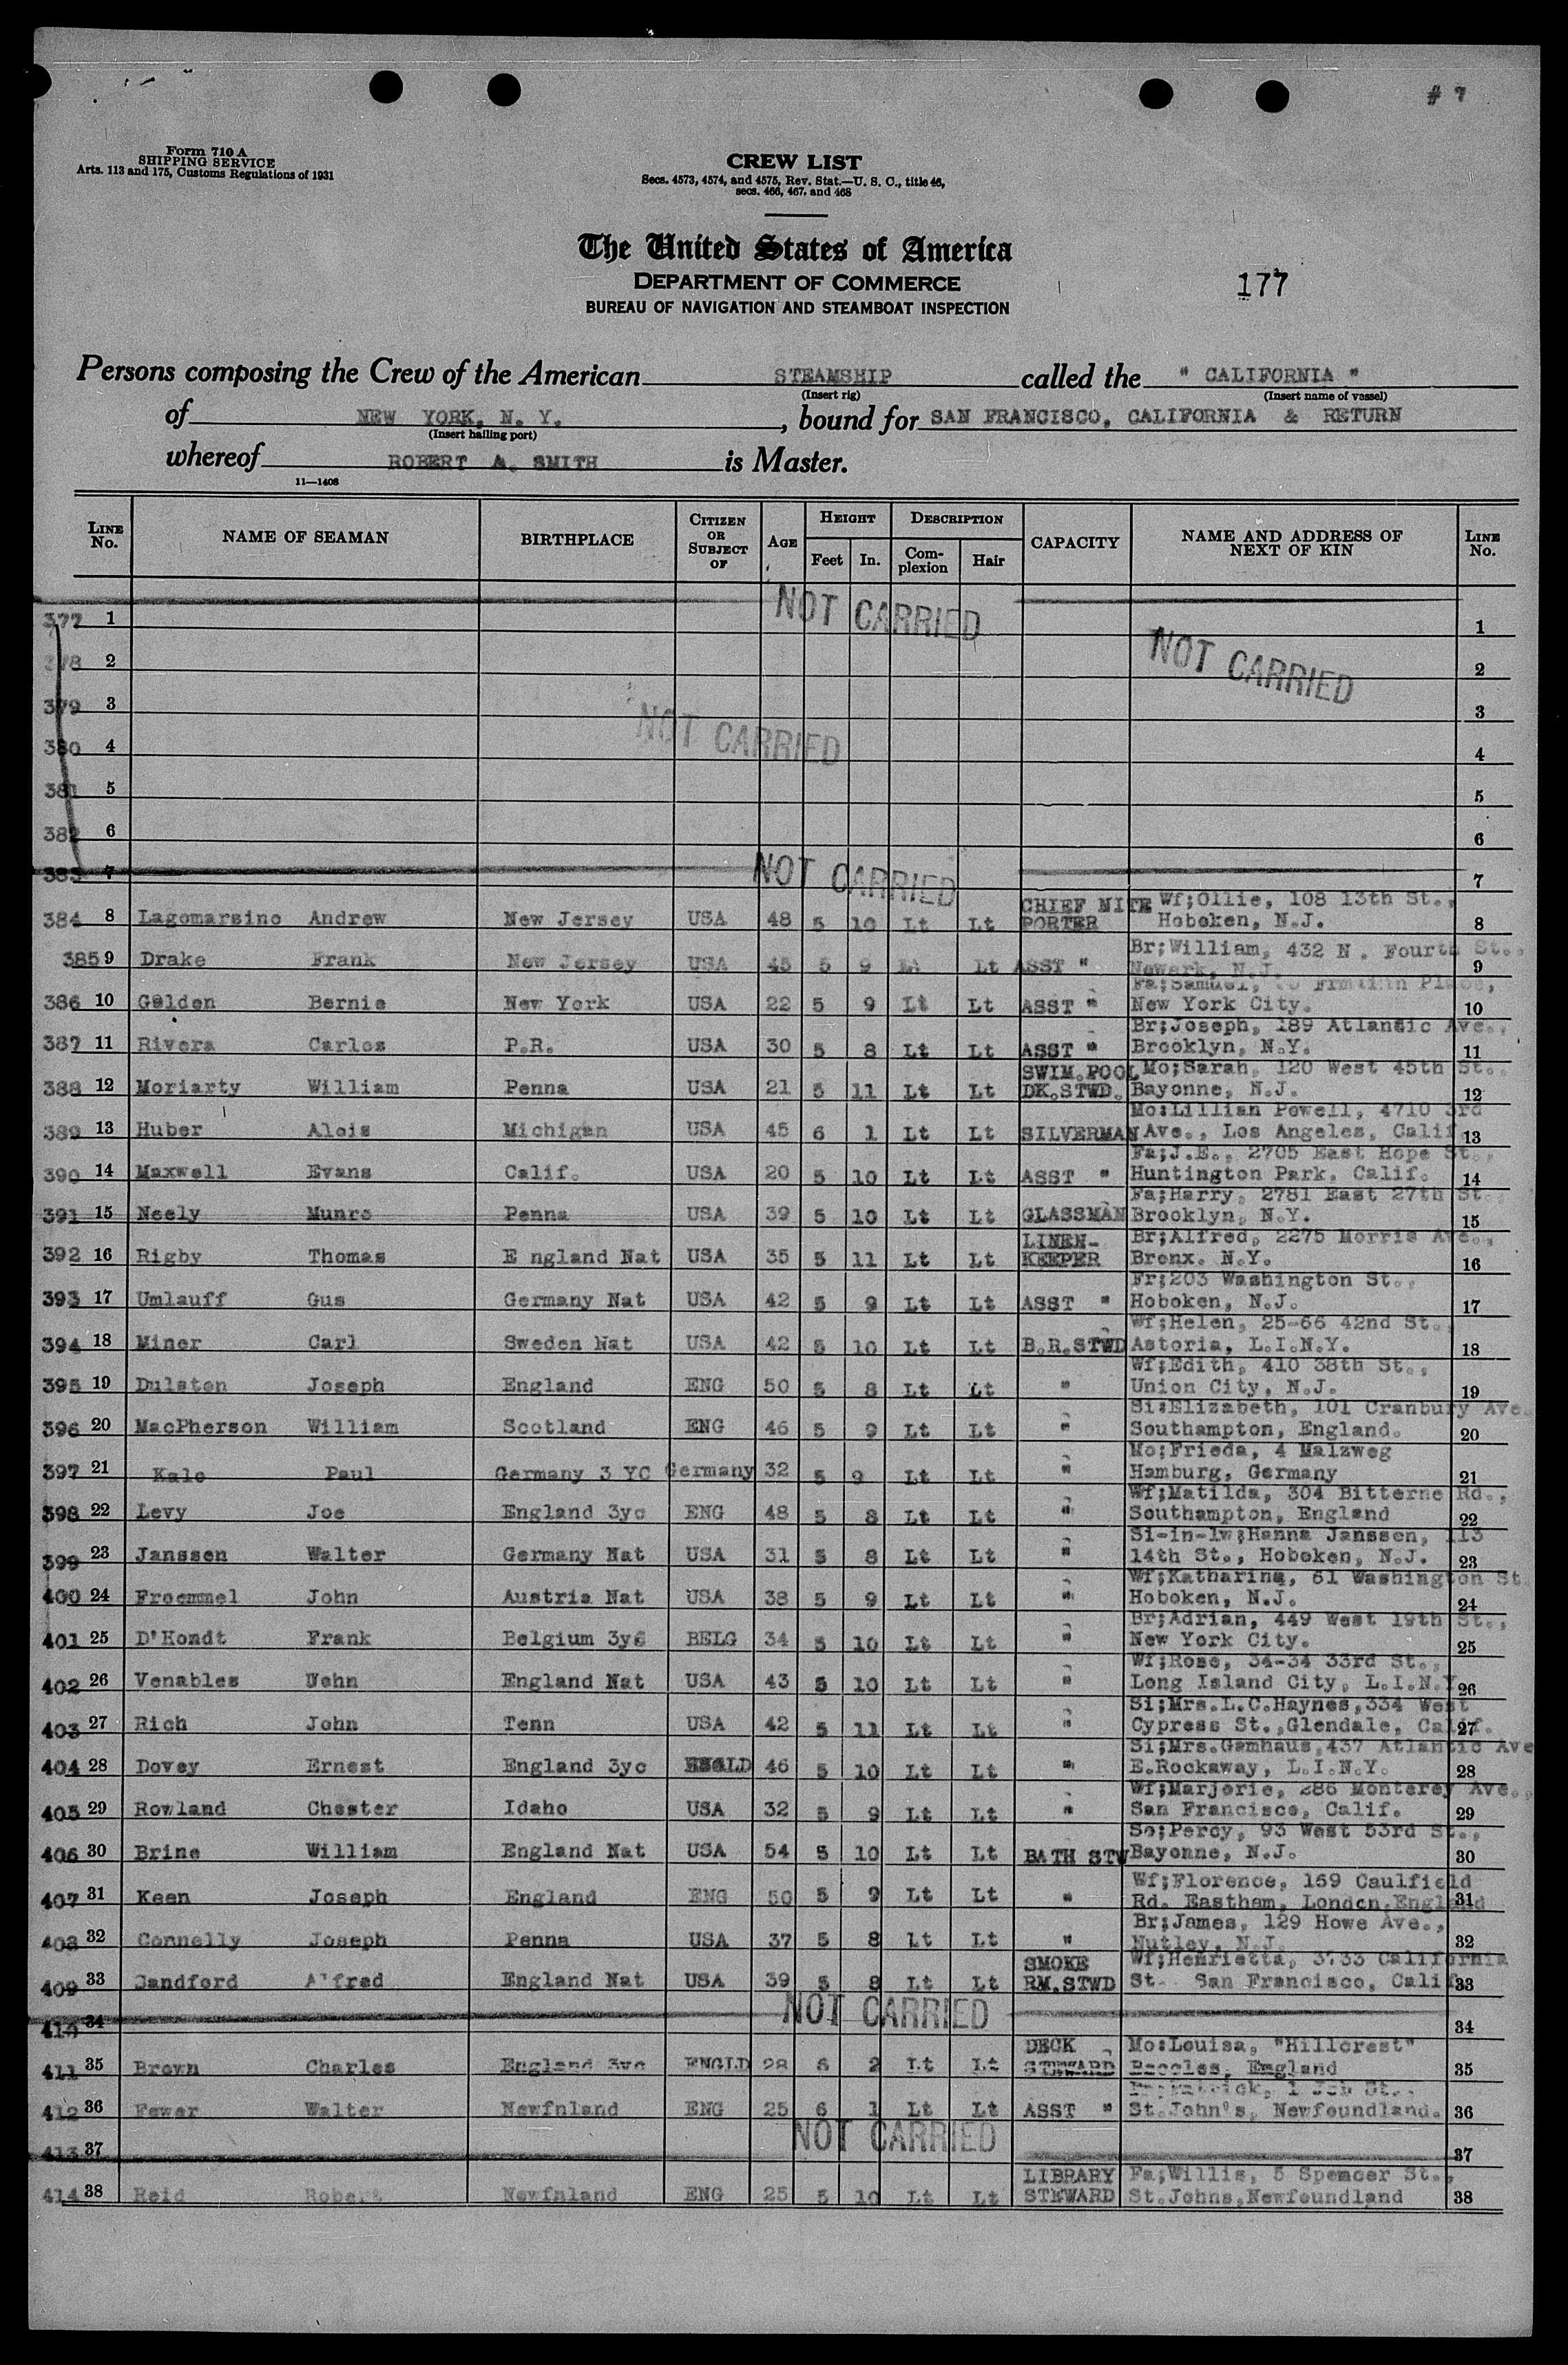 # 7
Form 710 A
SHIPPING SERVICE
Arts. 113 and 175, Customs Regulations of 1931
CREW LIST
Secs. 4573, 4574, and 4575, Rev. Stat.—U. S. C., title 46,
secs. 466, 467, and 468
The United States of America
DEPARTMENT OF COMMERCE
BUREAU OF NAVIGATION AND STEAMBOAT INSPECTION
177
Persons composing the Crew of the American STEAMSHIP called the " CALIFORNIA "
(Insert rig) (Insert name of vessel)
of NEW YORK, N. Y. , bound for SAN FRANCISCO, CALIFORNIA & RETURN
(Insert hailing port)
whereof ROBERT A. SMITH is Master.
11—1408
LINE No. NAME OF SEAMAN BIRTHPLACE CITIZEN OR SUBJECT OF AGE HEIGHT Feet In. DESCRIPTION Complexion Hair CAPACITY NAME AND ADDRESS OF NEXT OF KIN LINE No.
377 1 NOT CARRIED 1
378 2 NOT CARRIED 2
379 3 3
380 4 NOT CARRIED 4
381 5 5
382 6 6
383 7 NOT CARRIED 7
384 8 Lagomarsino Andrew New Jersey USA 48 5 10 Lt Lt CHIEF NITE PORTER Wf;Ollie, 108 13th St., Hoboken, N.J. 8
385 9 Drake Frank New Jersey USA 45 5 9 Lt Lt ASST " Br;William, 432 N. Fourth St., Newark, N.J. 9
386 10 Golden Bernie New York USA 22 5 9 Lt Lt ASST " Fa;Samuel, New York City. 10
387 11 Rivera Carlos P.R. USA 30 5 8 Lt Lt ASST " Br;Joseph, 189 Atlandic Ave., Brooklyn, N.Y. 11
388 12 Moriarty William Penna USA 21 5 11 Lt Lt SWIM.POOL DK.STWD. Mo;Sarah, 120 West 45th St., Bayonne, N.J. 12
389 13 Huber Alois Michigan USA 45 6 1 Lt Lt SILVERMAN Mo:Lillian Powell, 4710 3rd Ave., Los Angeles, Calif 13
390 14 Maxwell Evans Calif. USA 20 5 10 Lt Lt ASST " Fa;J.E., 2705 East Hope St., Huntington Park, Calif. 14
391 15 Neely Munro Penna USA 39 5 10 Lt Lt GLASSMAN Fa;Harry, 2781 East 27th St. Brooklyn, N.Y. 15
392 16 Rigby Thomas E ngland Nat USA 35 5 11 Lt Lt LINEN-KEEPER Br;Alfred, 2275 Morris Ave., Bronx. N.Y. 16
393 17 Umlauff Gus Germany Nat USA 42 5 9 Lt Lt ASST " Fr;203 Washington St., Hoboken, N.J. 17
394 18 Miner Carl Sweden Nat USA 42 5 10 Lt Lt B.R.STWD Wf;Helen, 25-66 42nd St. Astoria, L.I.N.Y. 18
395 19 Dulston Joseph England ENG 50 5 8 Lt Lt " Wf;Edith, 410 38th St., Union City, N.J. 19
396 20 MacPherson William Scotland ENG 46 5 9 Lt Lt " Si:Elizabeth, 101 Cranbury Ave. Southampton, England. 20
397 21 Kalo Paul Germany 3 YC Germany 32 5 9 Lt Lt " Mo;Frieda, 4 Malzweg Hamburg, Germany 21
398 22 Levy Joe England 3yc ENG 48 5 8 Lt Lt " Wf;Matilda, 304 Bitterne Rd., Southampton, England 22
399 23 Janssen Walter Germany Nat USA 31 5 8 Lt Lt " Si-in-lw;Hanna Janssen, 113 14th St., Hoboken, N.J. 23
400 24 Froemmel John Austria Nat USA 38 5 9 Lt Lt " Wf;Katharina, 61 Washington St. Hoboken, N.J. 24
401 25 D'Hondt Frank Belgium 3yc BELG 34 5 10 Lt Lt " Br;Adrian, 449 West 19th St., New York City. 25
402 26 Venables England Nat USA 43 5 10 Lt Lt " Wf;Rose, 34-34 33rd St., Long Island City, L.I.N.Y. 26
403 27 Rich John Tenn USA 42 5 11 Lt Lt " Si;Mrs.L.C.Haynes,334 West Cypress St.,Glendale, Calif. 27
404 28 Dovey Ernest England 3yc ENGLD 46 5 10 Lt Lt " Si;Mrs.Gamhaus,437 Atlantic Ave E.Rockaway, L.I.N.Y. 28
405 29 Rowland Chester Idaho USA 32 5 9 Lt Lt " Wf;Marjorie, 286 Monterey Ave., San Francisco, Calif. 29
406 30 Brine William England Nat USA 54 5 10 Lt Lt BATH STW So;Percy, 93 West 53rd St., Bayonne, N.J. 30
407 31 Keen Joseph England ENG 50 5 9 Lt Lt " Wf;Florence, 159 Caulfield Rd. Eastham, London.England 31
408 32 Connelly Joseph Penna USA 37 5 8 Lt Lt " Br;James, 129 Howe Ave., Nutley, N.J. 32
409 33 Sandford Alfred England Nat USA 39 5 8 Lt Lt SMOKE RM.STWD Wf;Henrietta, 3733 California St. San Francisco, Calif. 33
410 34 NOT CARRIED 34
411 35 Brown Charles England 3yc ENGLD 28 6 2 Lt Lt DECK STEWARD Mo:Louisa, "Hillcrest" England 35
412 36 Fewer Walter Newfnland ENG 25 6 1 Lt Lt ASST " St.John's, Newfoundland. 36
413 37 NOT CARRIED 37
414 38 Reid Robert Newfnland ENG 25 5 10 Lt Lt LIBRARY STEWARD Fa;Willis, 5 Spencer St., St.Johns,Newfoundland 38